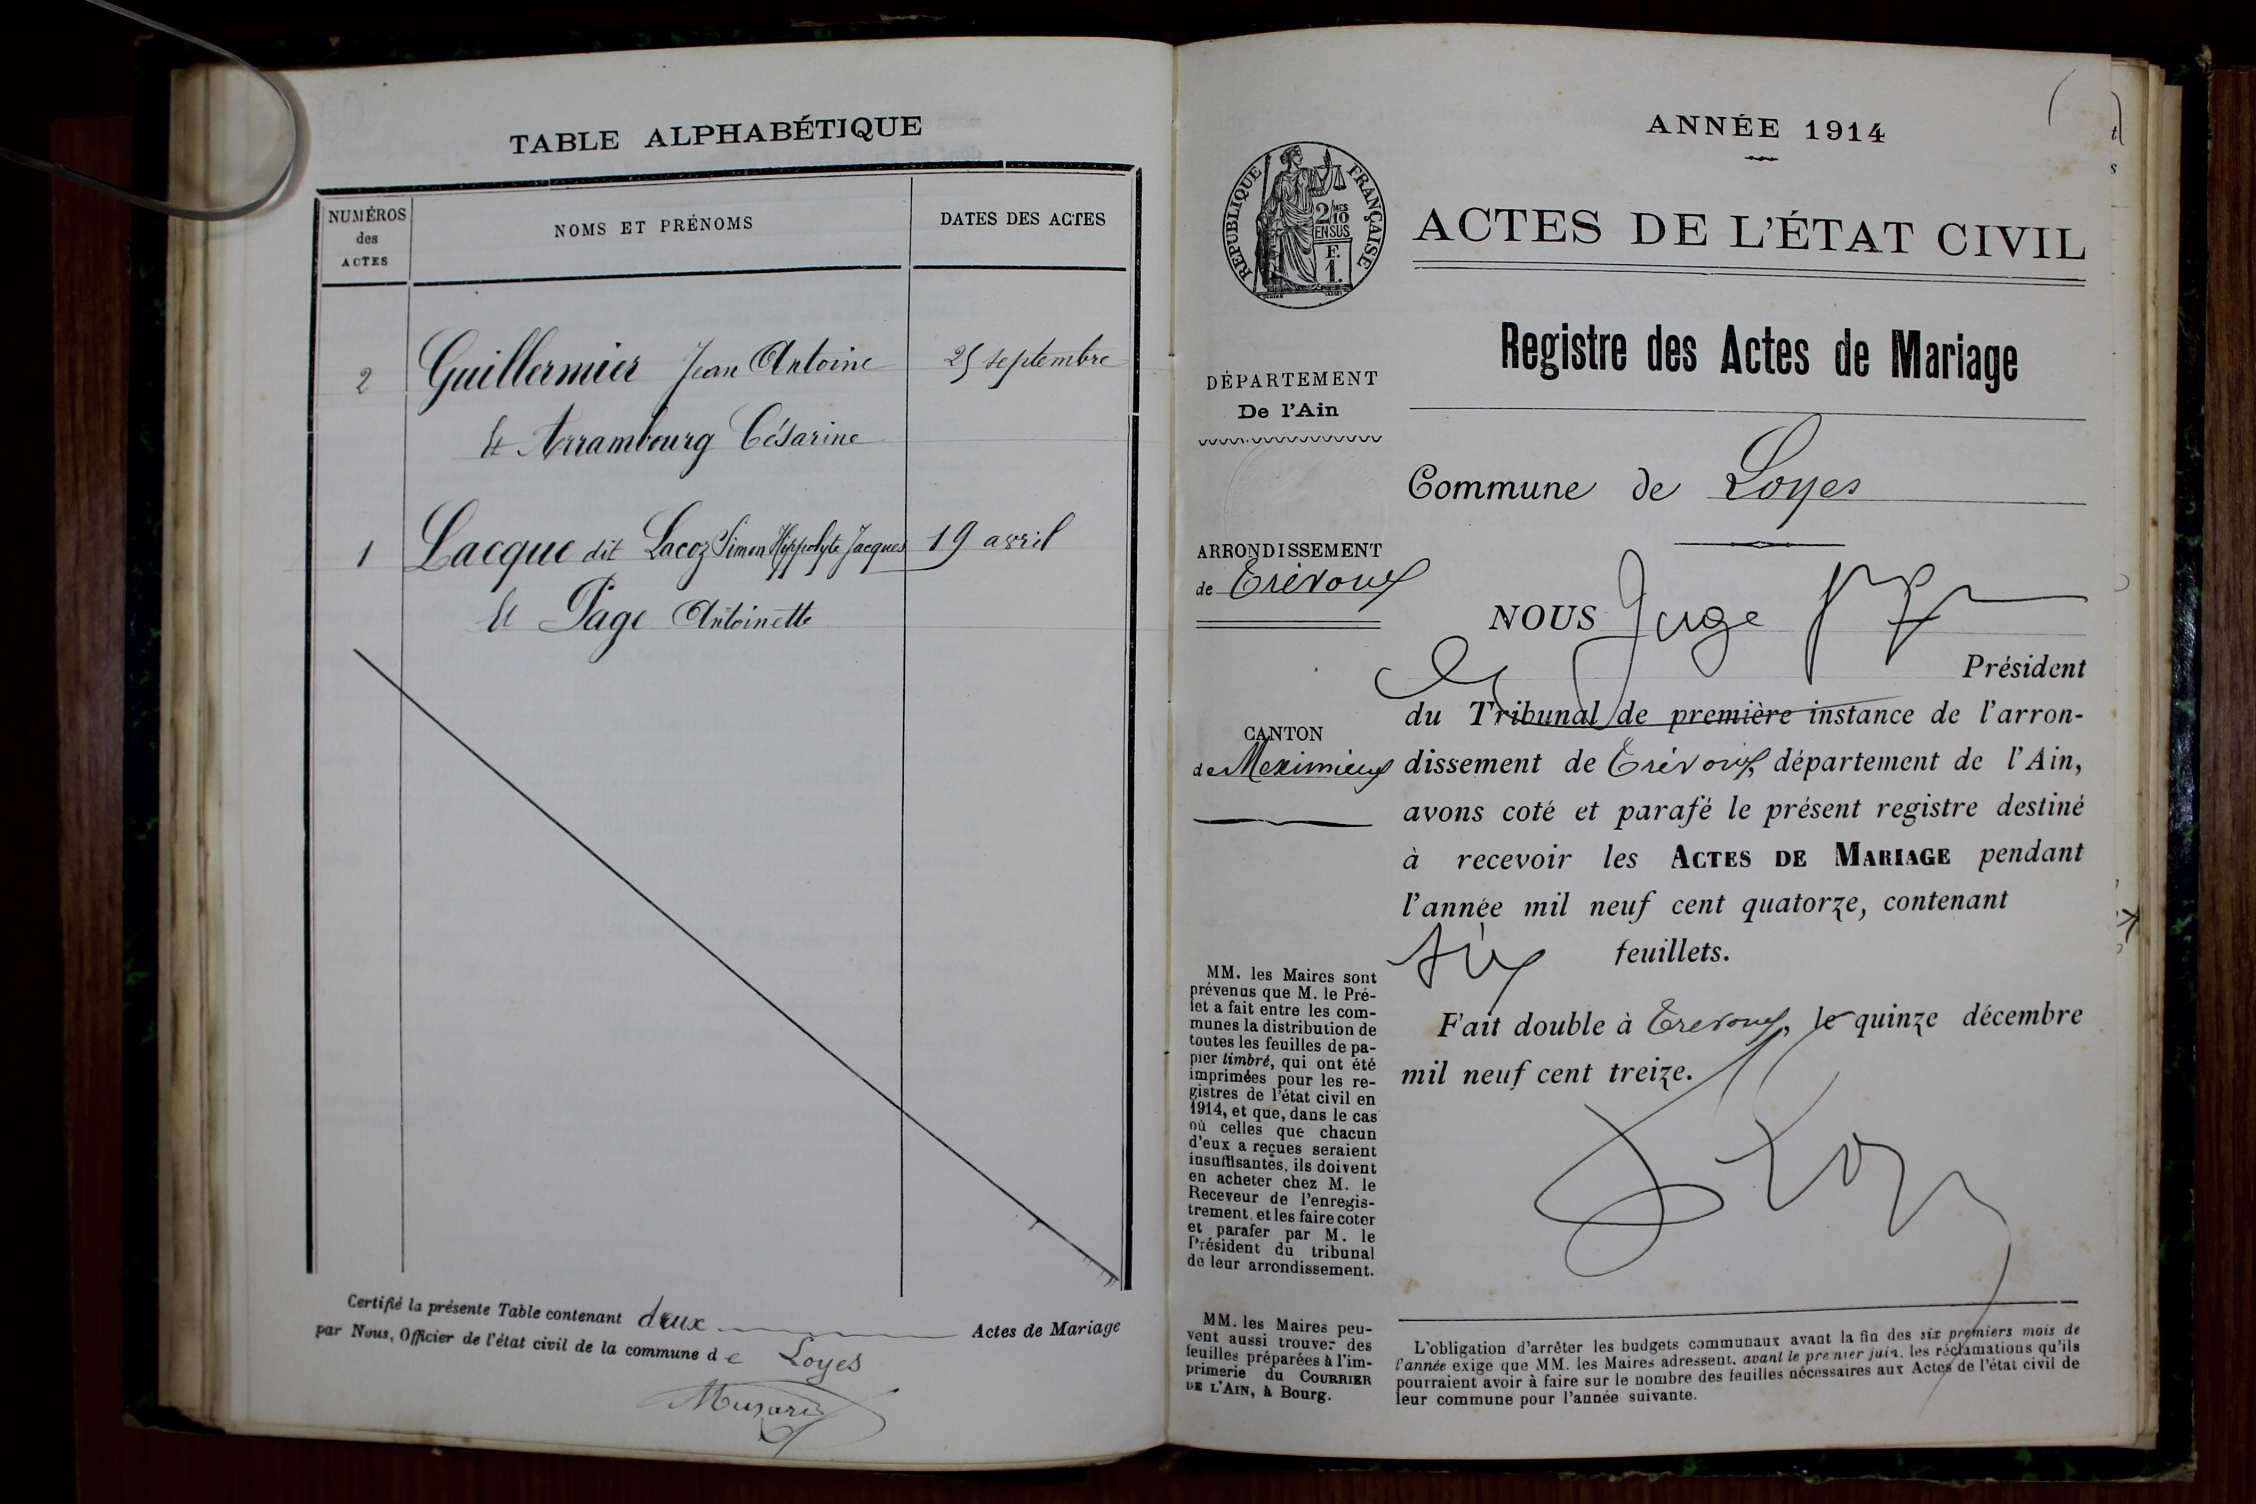 TABLE ALPHABÉTIQUE
NUMÉROS
des
ACTES
NOMS ET PRÉNOMS
DATES DES ACTES
2
Guillermier Jean Antoine
25 septembre
et Arrambourg Césarine
1
Lacque dit Lacoz Simon Hippolyte Jacques
19 avril
et Page Antoinette
Certifié la présente Table contenant deux Actes de Mariage
par Nous, Officier de l'état civil de la commune de Loyes
ANNÉE 1914
RÉPUBLIQUE FRANÇAISE
2/10 MES
EN SUS
F.
1.
ACTES DE L'ÉTAT CIVIL
Registre des Actes de Mariage
DÉPARTEMENT
De l'Ain
Commune de Loyes
ARRONDISSEMENT
de Trévoux
CANTON
de Meximieux
NOUS Juge
Président
du Tribunal de première instance de l'arron-
dissement de Trévoux, département de l'Ain,
avons coté et parafé le présent registre destiné
à recevoir les ACTES DE MARIAGE pendant
l'année mil neuf cent quatorze, contenant
six feuillets.
Fait double à Trévoux, le quinze décembre
mil neuf cent treize.
MM. les Maires sont
prévenus que M. le Pré-
fet a fait entre les com-
munes la distribution de
toutes les feuilles de pa-
pier timbré, qui ont été
imprimées pour les re-
gistres de l'état civil en
1914, et que, dans le cas
où celles que chacun
d'eux a reçues seraient
insuffisantes, ils doivent
en acheter chez M. le
Receveur de l'enregis-
trement, et les faire coter
et parafer par M. le
Président du tribunal
de leur arrondissement.
MM. les Maires peu-
vent aussi trouver des
feuilles préparées à l'im-
primerie du COURRIER
DE L'AIN, à Bourg.
L'obligation d'arrêter les budgets communaux avant la fin des six premiers mois de
l'année exige que MM. les Maires adressent, avant le premier juin, les réclamations qu'ils
pourraient avoir à faire sur le nombre des feuilles nécessaires aux Actes de l'état civil de
leur commune pour l'année suivante.